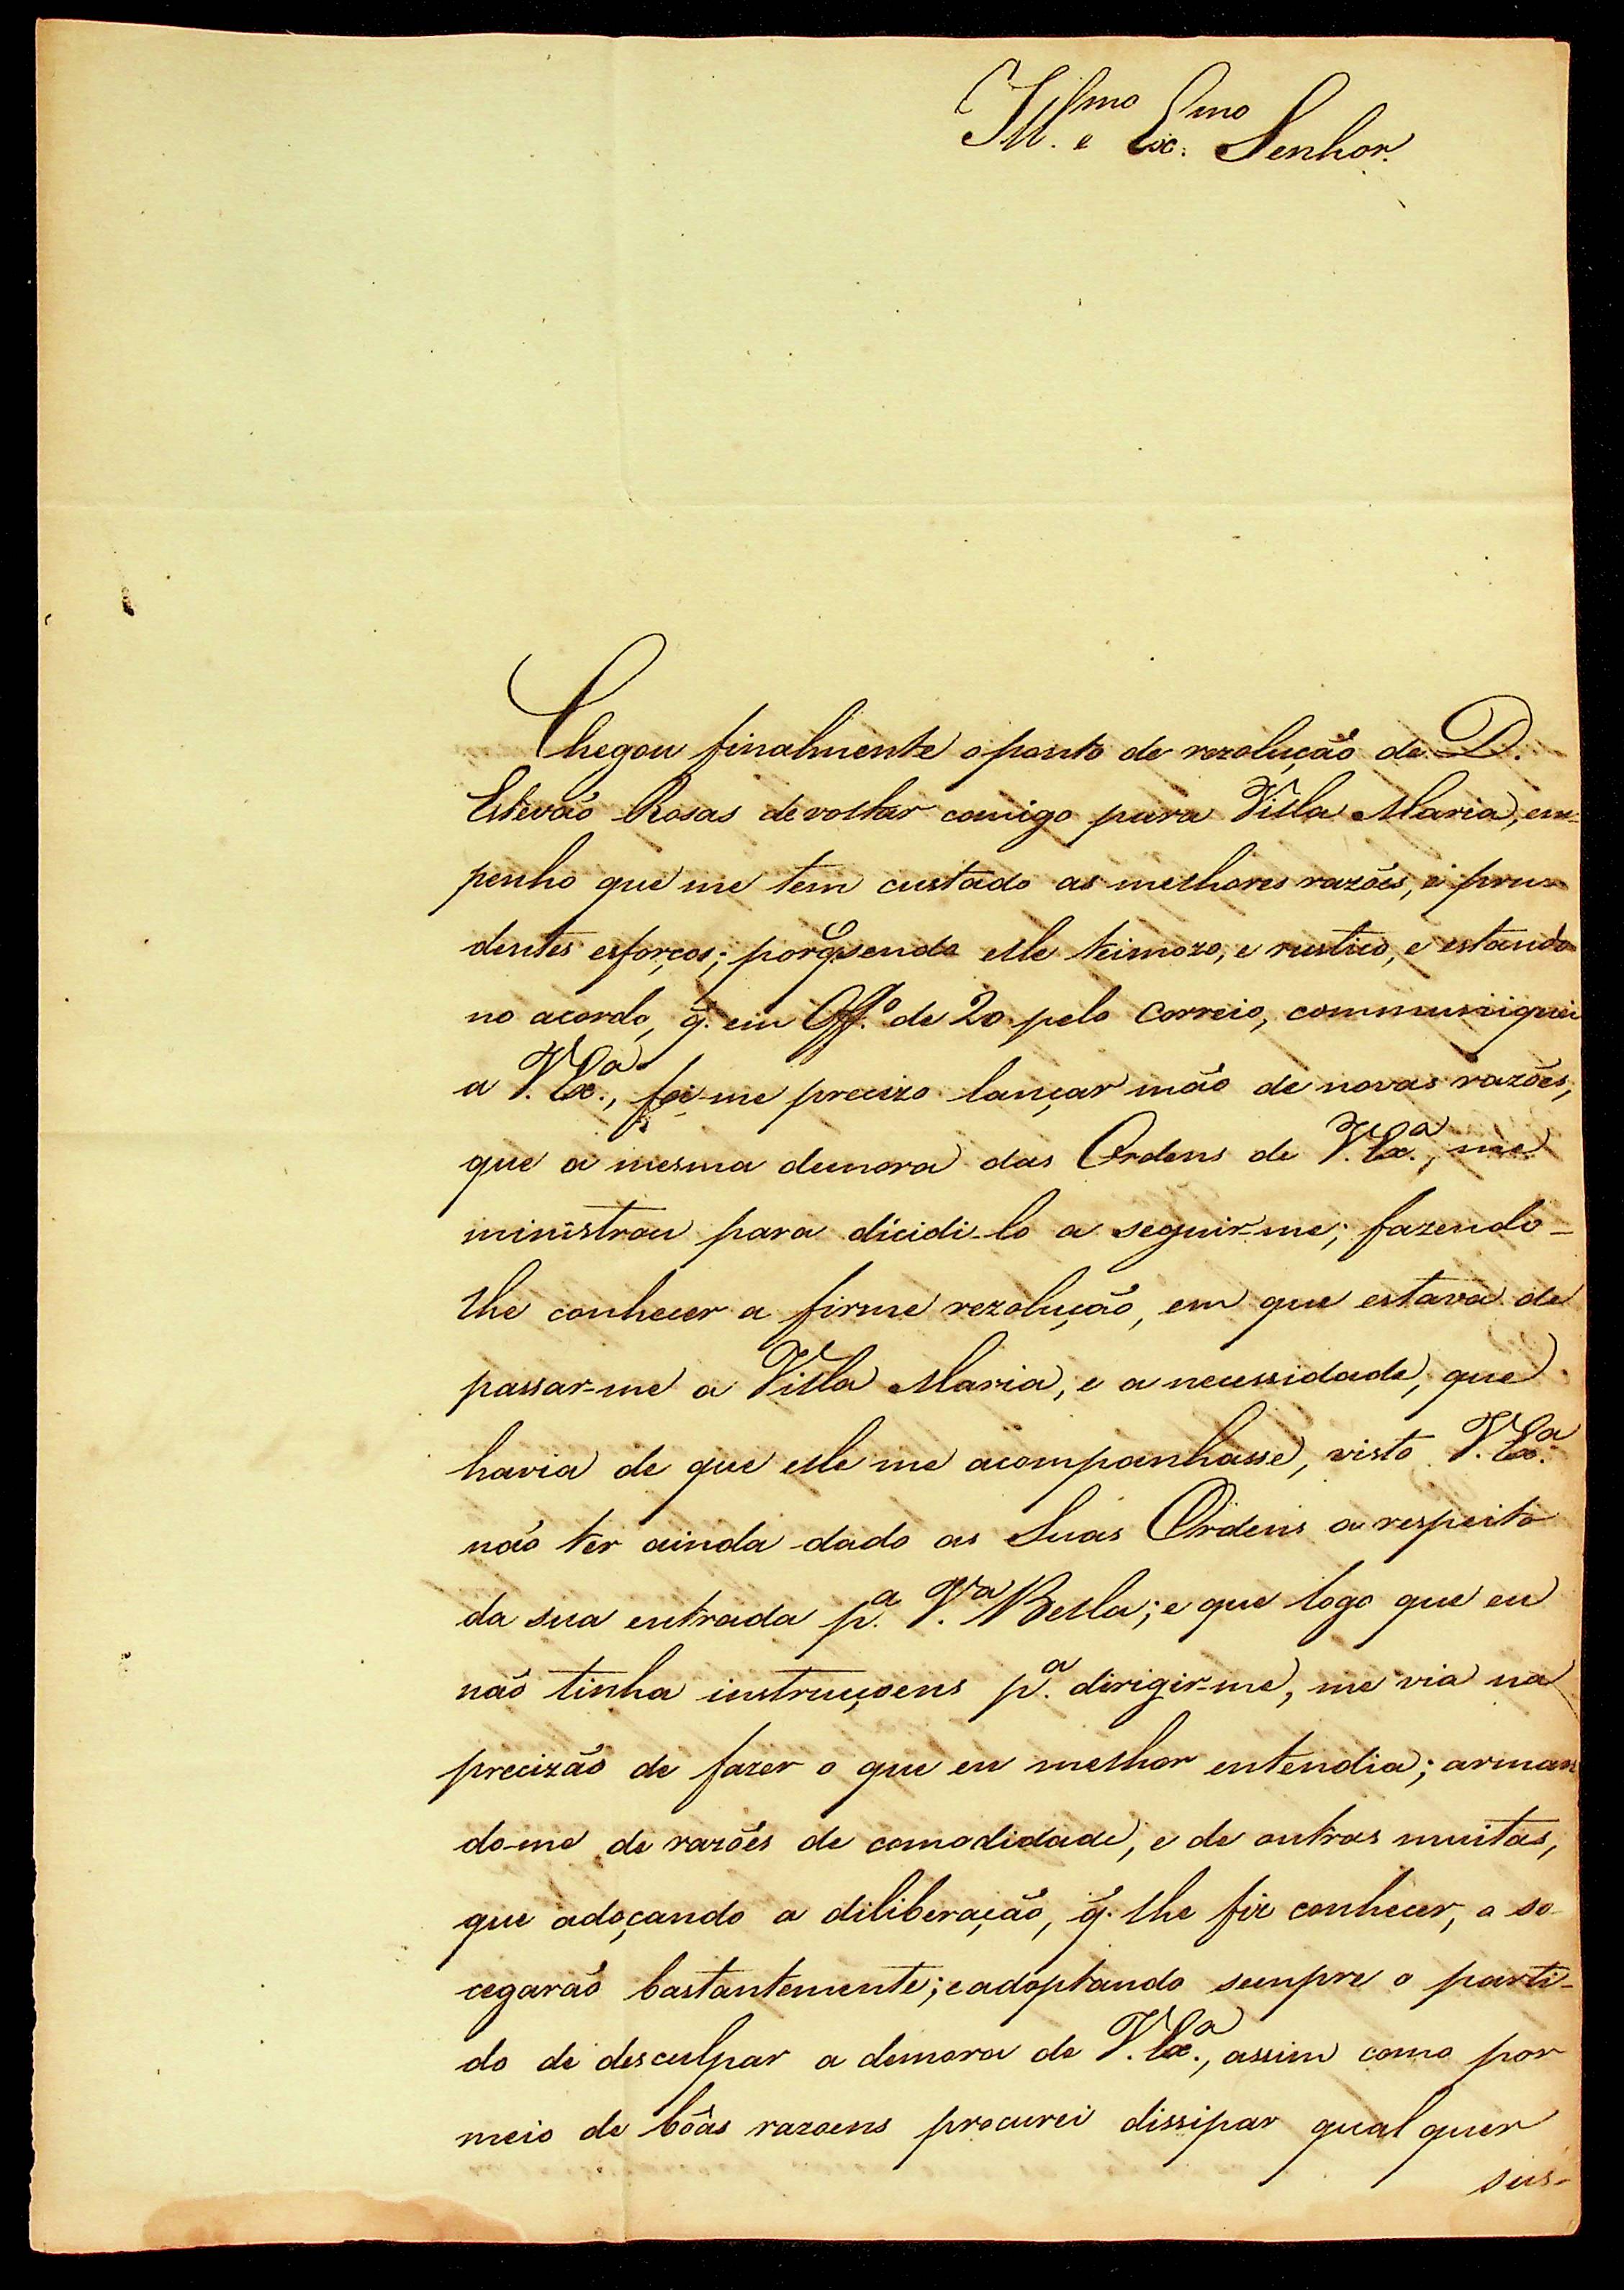 Ill.mo e Ex.mo Senhor.
Chegou finalmente o ponto de rezolução de D.
Estevão Rosas de voltar comigo para Villa Maria, em-
penho que me tem custado as melhores razões, e pru-
dentes esforços; porq̃ sendo elle teimozo, e rustico, e estando
no acordo, q̃. em Off.º de 20 pelo Correio, communiquei
a V. Ex.a, foi-me precizo lançar mão de novas razões,
que a mesma demora das Ordens de V. Ex.a, me
ministrou para dicidi-lo a seguir-me; fazendo-
lhe conhecer a firme rezolução, em que estava de
passar-me a Villa Maria, e a necessidade, que
havia de que elle me acompanhasse, visto V. Ex.a
não ter ainda dado as Suas Ordens a respeito
da sua entrada p.a V.a Bella; e que logo que eu
não tinha instrucçoens p.a dirigir-me, me via na
precizão de fazer o que eu melhor entendia; arman
do-me de razões de comodidade, e de outras muitas,
que adoçando a diliberação, q̃. lhe fiz conhecer, o so-
cegarão bastantemente; e adoptando sempre o parti-
do de desculpar a demora de V. Ex.a, assim como por
meio de bôas razoens procurei dissipar qualquer
sus-